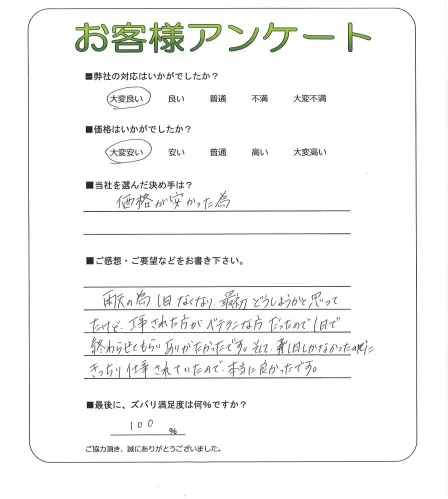 お客様アンケート
■弊社の対応はいかがでしたか？
大変良い 良い 普通 不満 大変不満
■価格はいかがでしたか？
大変安い 安い 普通 高い 大変高い
■当社を選んだ決め手は？
価格が安かった為
■ご感想・ご要望などをお書き下さい。
雨天の為 1日なくなり、最初どうしようかと思って
たけど、工事された方がベテランな方だったので1日で
終わらせてもらいありがたかったです。そして、1日しかなかったのに
きっちり仕事されていたので、本当に良かったです。
■最後に、ズバリ満足度は何％ですか？
100 %
ご協力頂き、誠にありがとうございました。